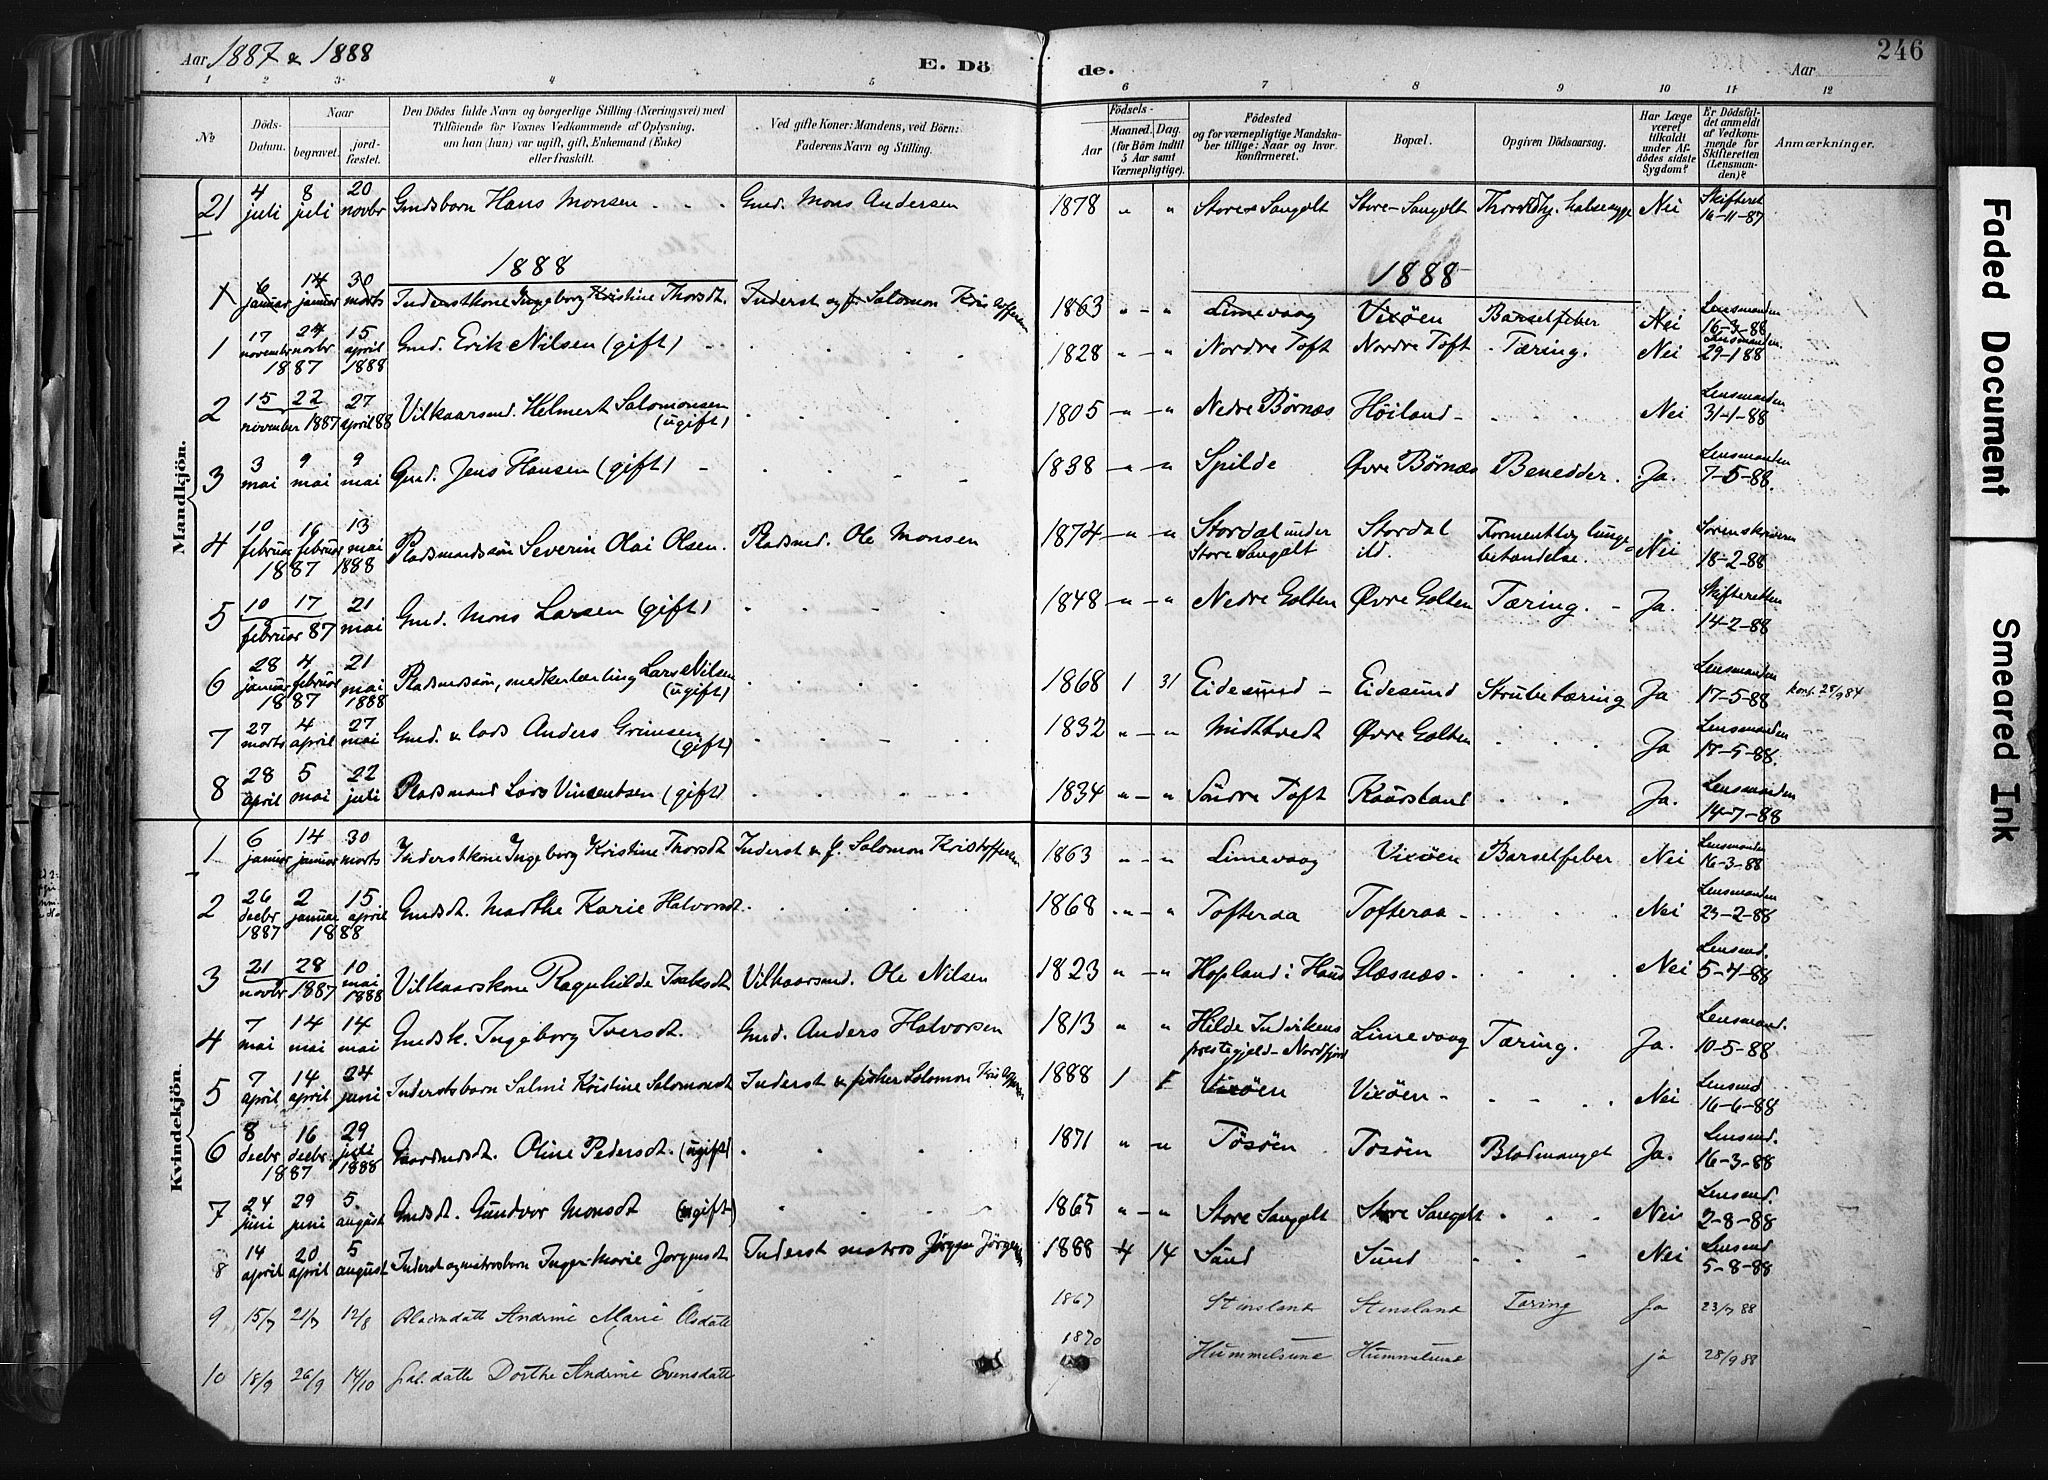 Aar 1887 & 1888
E. Dö
de.
Aar
246
1 2 3 4 5 6 7 8 9 10 11 12
№
Döds-Datum.
Naar
begravet.
jord-fæstet.
Den Dödes fulde Navn og borgerlige Stilling (Næringsvei) med
Tilföiende for Voxnes Vedkommende af Oplysning,
om han (hun) var ugift, gift, Enkemand (Enke)
eller fraskilt.
Ved gifte Koner: Mandens, ved Börn:
Faderens Navn og Stilling.
Födsels-
Aar
Maaned. Dag.
(for Börn indtil
5 Aar samt
Værnepligtige).
Födested
og for værnepligtige Mandska-
ber tillige: Naar og hvor
konfirmeret.
Bopæl.
Opgiven Dödsaarsag.
Har Læge
været
tilkaldt
under Af-
dödes sidste
Sygdom?
Er Dödsfal-
det anmeldt
af Vedkom-
mende for
Skifteretten
(Lensman-
den)?
Anmærkninger.
Mandkjön.
21 4 juli 8 juli 20 novbr Gmdsbarn Hans Monsen Gmd. Mons Andersen 1878 " " Store Sangolt Store-Sangolt halsesyge Nei Skifteret 16-11-87
1888 1888
1 6 januar 14 januar 30 marts Inderstkone Ingeborg Kristine Thorsdt. Inderst og f. Salomon Kristoffersen 1863 " " Limevaag Vixöen Barselfeber Nei Lensmanden 16-3-88
1 17 novembr 24 novbr 1887 15 april 1888 Gmd. Erik Nilsen (gift) 1828 " " Nordre Toft Nordre Toft Tæring. Nei Lensmanden. 29-1 88
2 15 22 november 1887 27 april 88 Vilkaarsmd. Helmert Salomonsen (ugift) 1805 " " Nedre Börnæs Höiland Nei Lensmanden 31-1-88
3 3 mai 9 mai 9 mai Gmd. Jens Hansen (gift) 1838 " " Spilde Øvre Børnæs Benedder. Ja. Lensmanden 7-5-88.
4 10 februar 16 februar 1887 13 mai 1888 Pladsmandssön Severin Olai Olsen. Pladsmd. Ole Monsen 1874 " " Stordal under Store Sangolt Stordal ild. lungebetændelse. Nei Sorenskriveren 18-2-88
5 10 17 februar 87 21 mai Gmd. Mons Larsen (gift) 1848 " " Nedre Golten Øvre Golten Tæring. Ja. Skifteretten 14-2-88
6 28 januar 4 februar 1887 21 mai 1888 Pladsmdssön, Lars Nilsen (ugift) 1868 1 31 Eidesund Eidesund Strubetæring Ja Lensmanden 17-5-88 konf.
7 27 marts 4 april 27 mai Gmd. & lods Anders Grimsen (gift) 1832 " " Midttvedt Øvre Golten Ja Lensmanden 17-5-88.
8 28 april 5 mai 22 juli Pladsmand Lars Vinsentsen (gift) 1834 " " Söndre Toft Kaursland Ja. Lensmanden 14-7-88
Kvindekjön.
1 6 januar 14 januar 30 marts Inderstkone Ingeborg Kristine Thorsdt Inderst & f. Salomon Kristoffersen 1863 " " Limevaag Vixöen Barselfeber Nei Lensmanden 16-3-88
2 26 decbr 1887 2 januar 15 april 1888 Gmdsdt. Marthe Karie Halvorsdt 1868 " " Tofteraa Tofteraa Nei Lensmanden 23-2-88
3 21 novbr 28 1887 10 mai 1888 Vilkaarskone Ragnhilde Isaksdt Vilkaarsmd. Ole Nilsen 1823 " " Hopland i Haus Glæsnæs Nei Lensmd. 5-4-88
4 7 mai 14 mai 14 mai Gmdsk. Ingeborg Iversdt. Gmd. Anders Halvorsen 1813 " " Hilde Indvikens prestegjeld-Nordfjord Limevaag Tæring. Ja. Lensmand. 10-5-88
5 7 april 14 april 24 juni Inderstsbarn Salmi Kristine Salomonsdt Inderst & fisker Salomon Kristoffersen 1888 1 Vixöen Vixöen Nei Lensmd 16-6-88
6 8 decbr 16 decbr. 1887 29 juli 1888 Gaardmdsdt. Oline Pedersdt. (ugift) 1871 " " Tösöen Tosöen Blodmangel Ja. Lensmd. 16-3-88
7 24 juni 29 juni 5. august Gmdsdt. Gundvor Monsdt (ugift) 1865 " " Store Sangolt Store Sangolt Nei Lensmd. 2-8-88
8 14 april 20 april 5 august Inderst og matrosbarn Inger Marie Jörgensdt Inderst matros Jörgen Jörgens 1888 4 14 Sund Sund Nei Lensmd 5-8-88
9 15/7 21/7 12/8 Andrine Marie Olsdatt 1867 Steinsland Steinsland Tæring Ja 23/7 88
10 18/9 26/9 14/10 datte Dorthe Andrine Evensdatte 1870 Hummelsund Hummelsund ja 28/9 88
Faded Document
Smeared Ink